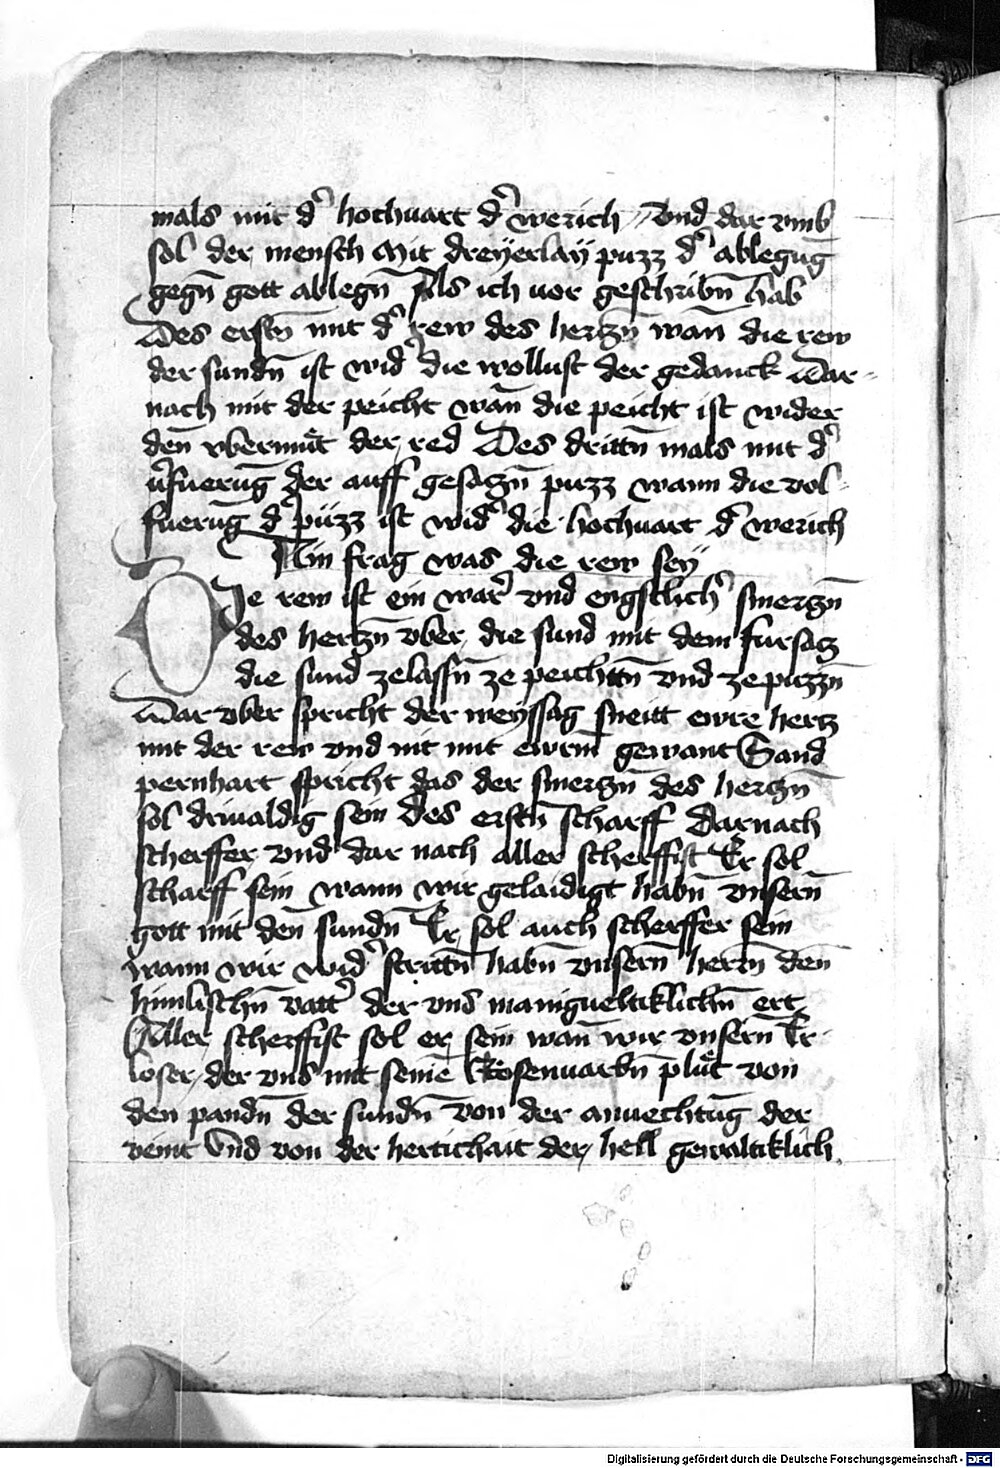 mals mit d' hochuart d' werich // Vnd dar vmb
sol der mensch Mit dreyerlaÿ puzz d' ablegūg
gegn̄ gott ablegn̄ Als ich uor geschribn̄ hab
Des erstn̄ mit d' rew des hertzn̄ wan̄ die rew
der sundn̄ ist wid' die wollust der gedanck Dar-
nach mit der peicht wan̄ die peicht ist wider
den̄ vbermuͤt der red Des drittn̄ mals mit d'
v'fuerūg der auff gesatzn̄ puzz wann die vol-
fuerūg d' püzz ist wid' die hochuart d' werich
Ain frag was die rew seÿ
Die rew ist ein war' vnd engstlich' smertzn̄
des hertzn̄ vber die sund mit dem fursatz
die sund zelassn̄ ze peichttn̄ vnd ze puzzn̄
Dar vber spricht der weyssag sneitt ewre hertz
mit der rew vnd nit mit ewrm̄ gewant Sand
pernhart spricht das der smertzn̄ des hertzn̄
sol driualdig sein Des erstn̄ scharff Darnach
scherffer vnd dar nach aller scherffist Er sol
scharff sein wann wir gelaidigt habn̄ vnsern̄
gott mit den̄ sundn̄ Er sol auch scherffer sein
wann wir wid' strittn̄ habn̄ vnsern̄ herrn̄ den̄
himlischn̄ vatt' der vns manigueltiklichn̄ ert
Aller scherffist sol er sein wan̄ wir vnsern̄ Er-
loser der vns mit seinē Rosenuarbn̄ pluͤt von
den pandn̄ der sundn̄ von der anuechtūg der
veint Vnd von der hertichait der hell gewaltiklich
Digitalisierung gefördert durch die Deutsche Forschungsgemeinschaft - DFG